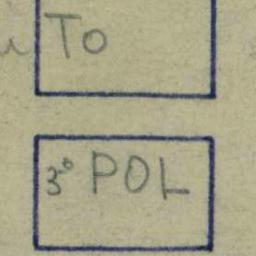 To
3° POL